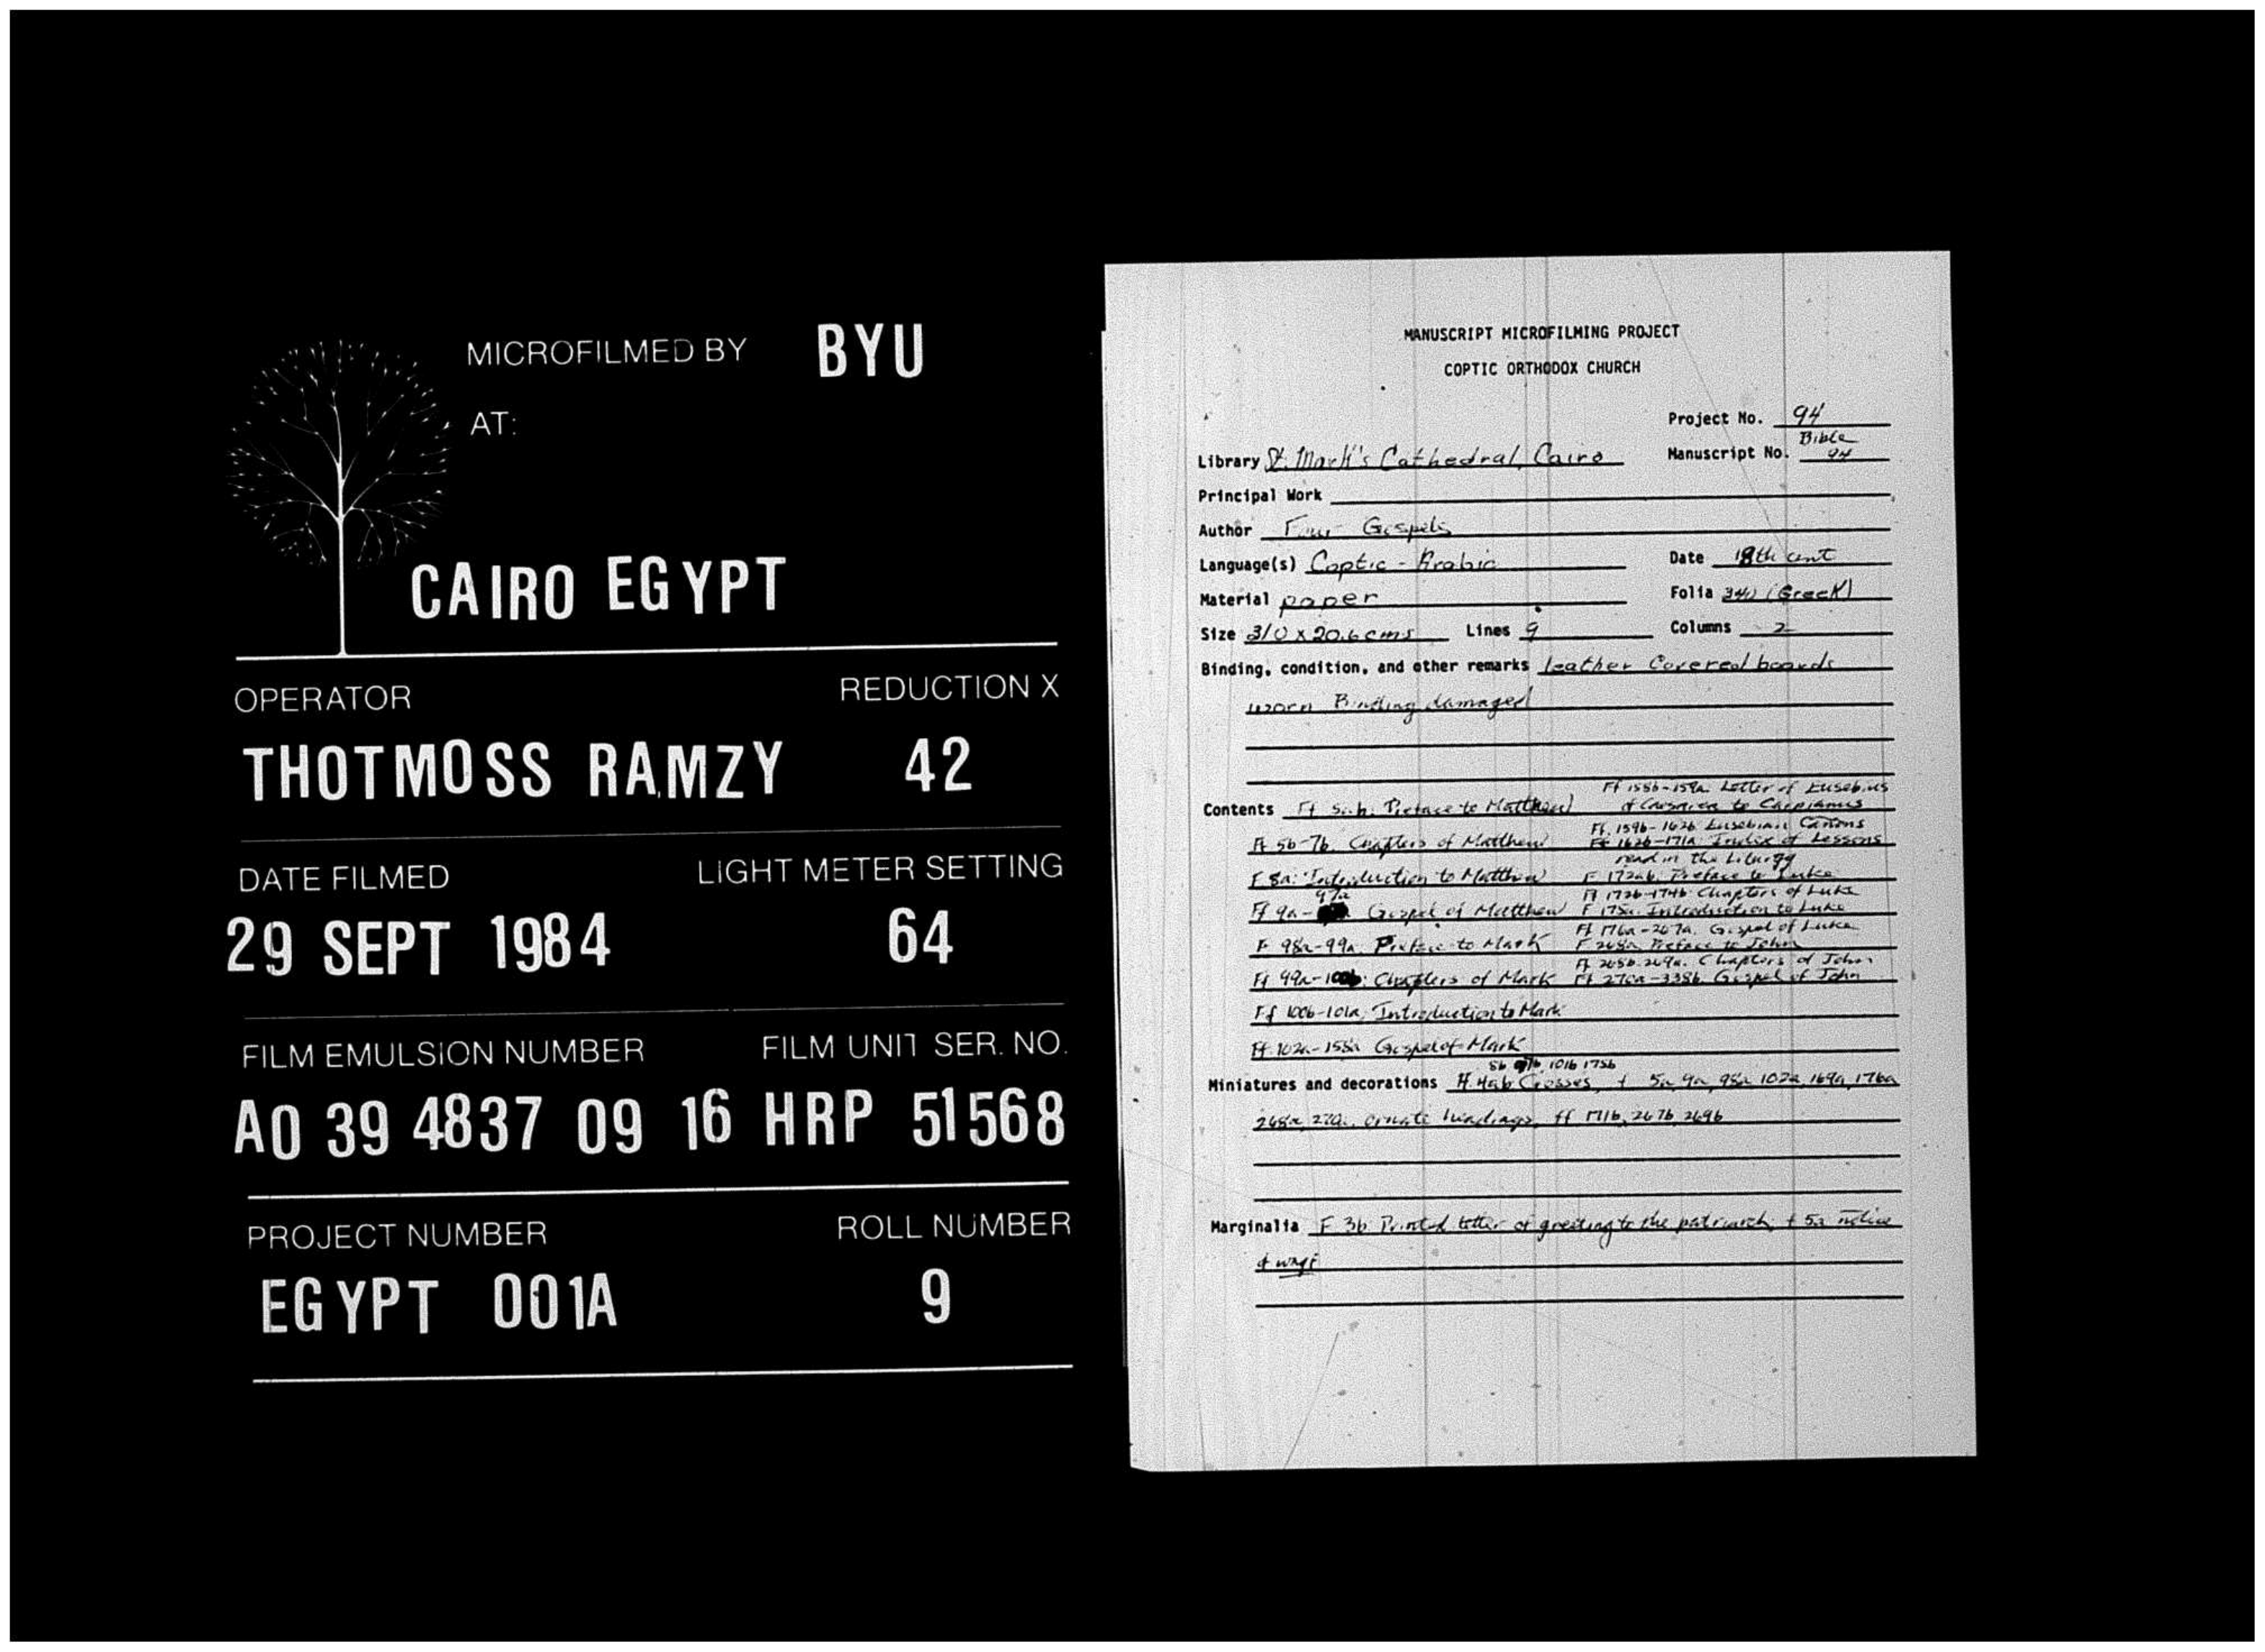 MICROFILMED BY BYU
AT:
CAIRO EGYPT
OPERATOR REDUCTION X
THOTMOSS RAMZY 42
DATE FILMED LIGHT METER SETTING
29 SEPT 1984 64
FILM EMULSION NUMBER FILM UNIT SER. NO.
A0 39 4837 09 16 HRP 51568
PROJECT NUMBER ROLL NUMBER
EGYPT 001A 9
MANUSCRIPT MICROFILMING PROJECT
COPTIC ORTHODOX CHURCH
Project No. 94
Library St. Mark's Cathedral, Cairo Manuscript No. Bible 94
Principal Work
Author Four Gospels
Language(s) Coptic - Arabic Date 18th cent
Material paper Folia 340 (Greek)
Size 31.0 x 20.6 cms Lines 9 Columns 2
Binding, condition, and other remarks leather Covered boards
worn Binding damaged
Contents Ff Preface to Matthew
Ff 5b-7b. Chapters of Matthew
F 8a: Introduction to Matthew
Ff 9a- 97a Gospel of Matthew
F 98a-99a. Preface to Mark
Ff 99a- Chapters of Mark
Ff 100b-101a. Introduction to Mark
Ff. 102a-158a Gospel of Mark
Ff 158b-159a. Letter of Eusebius
of Caesarea to Carpianus
Ff. 159b-162b Eusebian Canons
Ff 162b-171a Index of Lessons
read in the Liturgy
F 172ab. Preface to Luke
Ff 172b-174b. Chapters of Luke
F 175a. Introduction to Luke
Ff 176a-267a. Gospel of Luke
F 268a Preface to John
Ff 268b-269a. Chapters of John
Ff 270a-338b. Gospel of John
5b 101b 175b
Miniatures and decorations Ff. 4ab Crosses, f 5a 9a, 98a 102a, 169a, 176a
268a, 270a. ornate headings, ff 171b, 267b, 269b
Marginalia F 3b. Printed letter of greeting to the patriarch, f 5a notice
of waqf